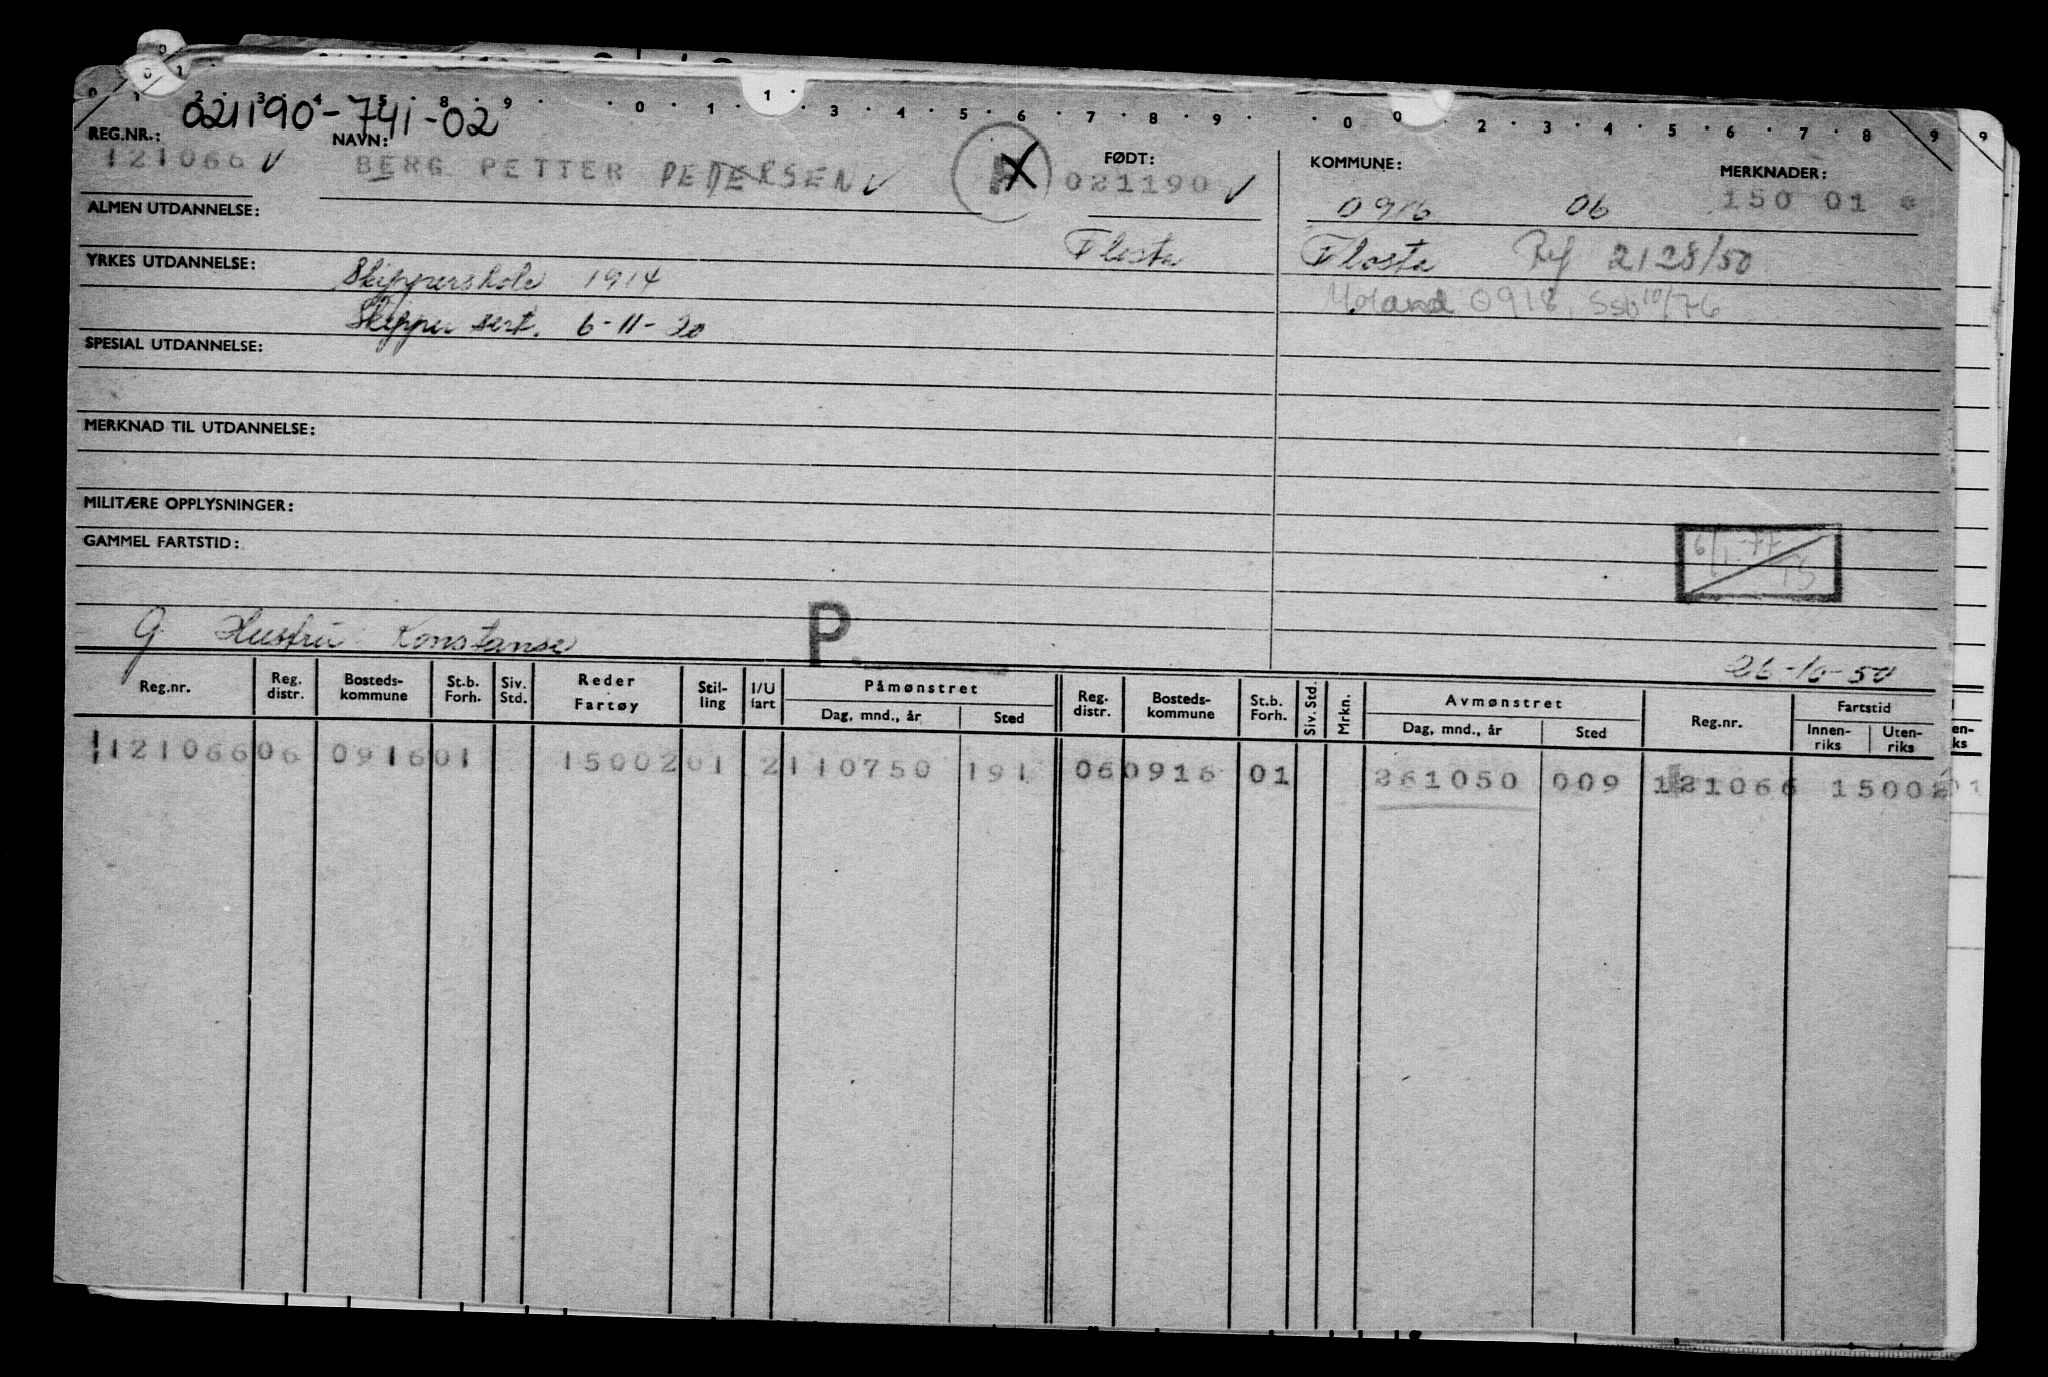 021190-741-02
REG.NR.: NAVN: FØDT: KOMMUNE: MERKNADER:
121066 V BERG PETTER PEDERSEN V 021190 V 0916 06 150 01
ALMEN UTDANNELSE:
Flosta Flosta Ref 2128/50
YRKES UTDANNELSE: Skipperskole 1914
Moland 0918, SSB 10/76
Skipper sert. 6-11-20
SPESIAL UTDANNELSE:
MERKNAD TIL UTDANNELSE:
MILITÆRE OPPLYSNINGER:
GAMMEL FARTSTID:
6/1-77
G Hustru Konstanse P 26-10-50
Reg.nr. Reg. distr. Bosteds-kommune St.b. Forh. Siv. Std. Reder Fartøy Stil-ling I/U fart Påmønstret Dag, mnd., år Sted Reg. distr. Bosteds-kommune St.b. Forh. Siv. Std. Mrkn. Avmønstret Dag, mnd., år Sted Reg.nr. Fartstid Innen-riks Uten-riks
121066 06 0916 01 15002 01 2 110750 191 06 0916 01 261050 009 121066 15002 01